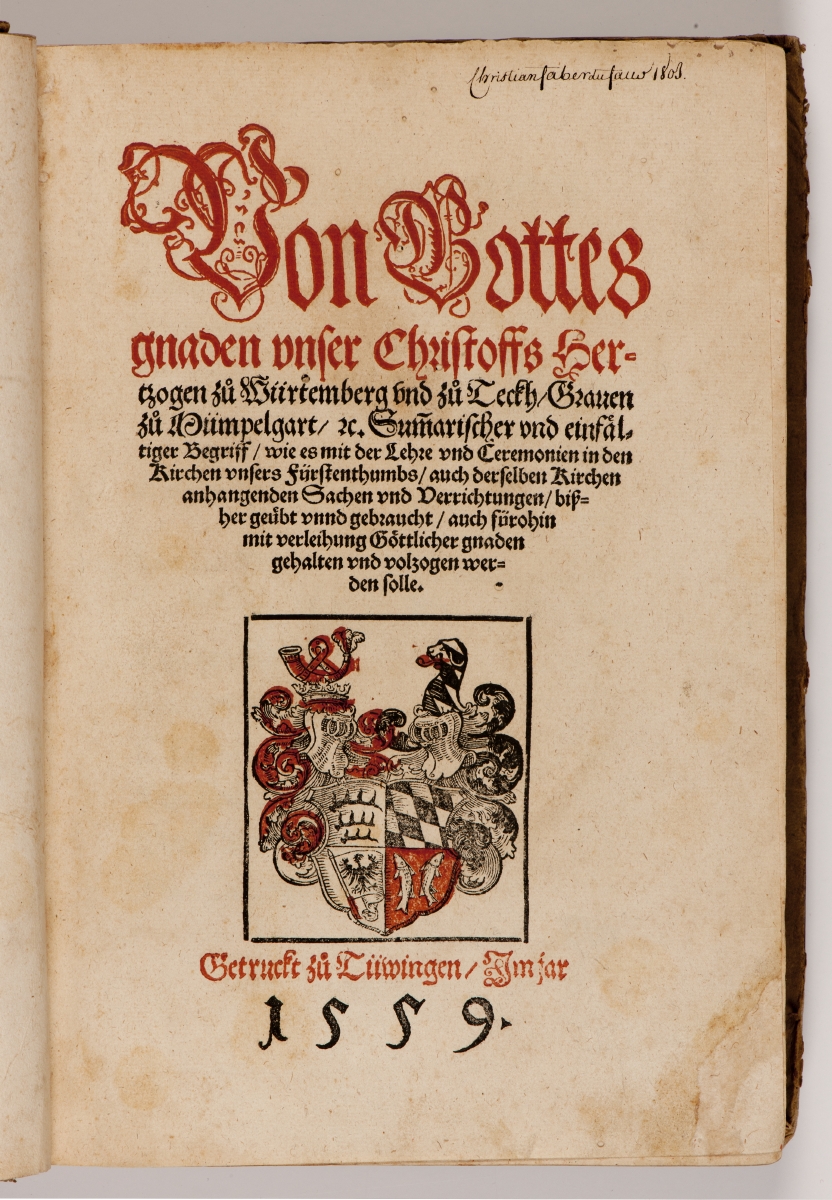 Christian faber du faur 1803.
Von Gottes
gnaden vnser Christoffs Her-
tzogen zů Würtemberg vnd zů Teckh/Grauen
zů Mümpelgart/ ꝛc. Sum̄arischer vnd einfäl-
tiger Begriff/ wie es mit der Lehre vnd Ceremonien in den
Kirchen vnsers Fürstenthumbs/ auch derselben Kirchen
anhangenden Sachen vnd Verrichtungen/ biß-
her geübt vnnd gebraucht/ auch fürohin
mit verleihung Göttlicher gnaden
gehalten vnd volzogen wer-
den solle.
Getruckt zů Tüwingen/ Im jar
1559.